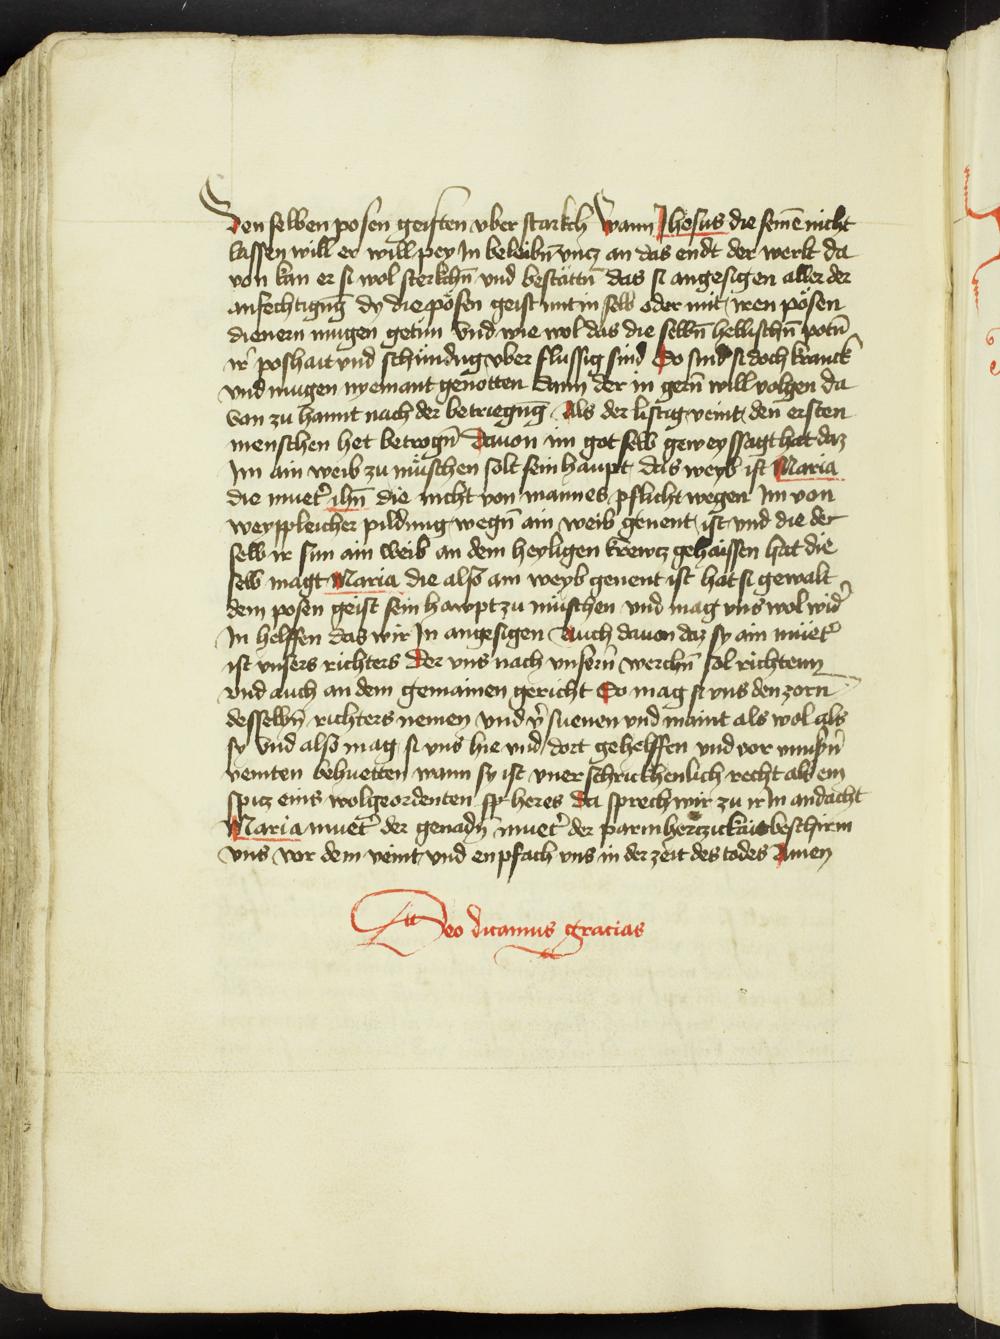 Den selben posen geisten vber starkch Wann Jhesus die seinē nicht
lassen will er will pey Jn beleibn̄ vncz an das endt der werlt da
von kan er si wol sterkchn̄ vnd bestättn̄ das si angesigen aller der
anfechtigūg dy die pösen geist mit in selb oder mit iren pösen
dienern mugen getun Vnd wie wol das die selbn̄ hellischn̄ potn̄
ir poshait vnd schundng vber flussig sind So sind si doch kranck
vnd mugen nyemant genotten dann der in gern̄ will volgen da
van zu hannt nach der betriegūg Als der listig veint den ersten
menschen het betrogn̄ Davon im got selb geweyssagt hat daz
Jm ain weib zu müschen solt sein haupt das weyb ist Maria
die muet̓ ihū die nicht von mannes pflicht wegen Jm von
weyppleicher pildung wegn̄ ain weib genent ist vnd die der
selb ir sun ain weib an dem heyligen krewcz gehaissen hat die
selb magt Maria die also ain weyb genent ist hat si gewalt
dem posen geist sein hawpt zu müschen vnd mag vns wol wid̓
Jn helffen das wir Jn angesigen Auch davon daz sy ain müet̓
ist vnsers richters Der vns nach vnsern̄ werchn̄ sol richtenn
vnd auch an dem gemainen gericht So mag si vns den zorn
desselbn̄ richters nemen vnd v̓ suenen vnd maint als wol als
sy Vnd also mag si vns hie vnd dort gehelffen vnd vor vnnsn̄
veinten behuetten wann sy ist vnerschrickhenlich recht als ein
spicz eins wolgeordenten sp heres da sprech wir zu ir Jn andacht
Maria muet̓ der genadn̄ muet̓ der parmherczickäit beschirm
vns vor dem veint vnd enpfach vns in der zeit des todes Amen
Deo dicamus gracias